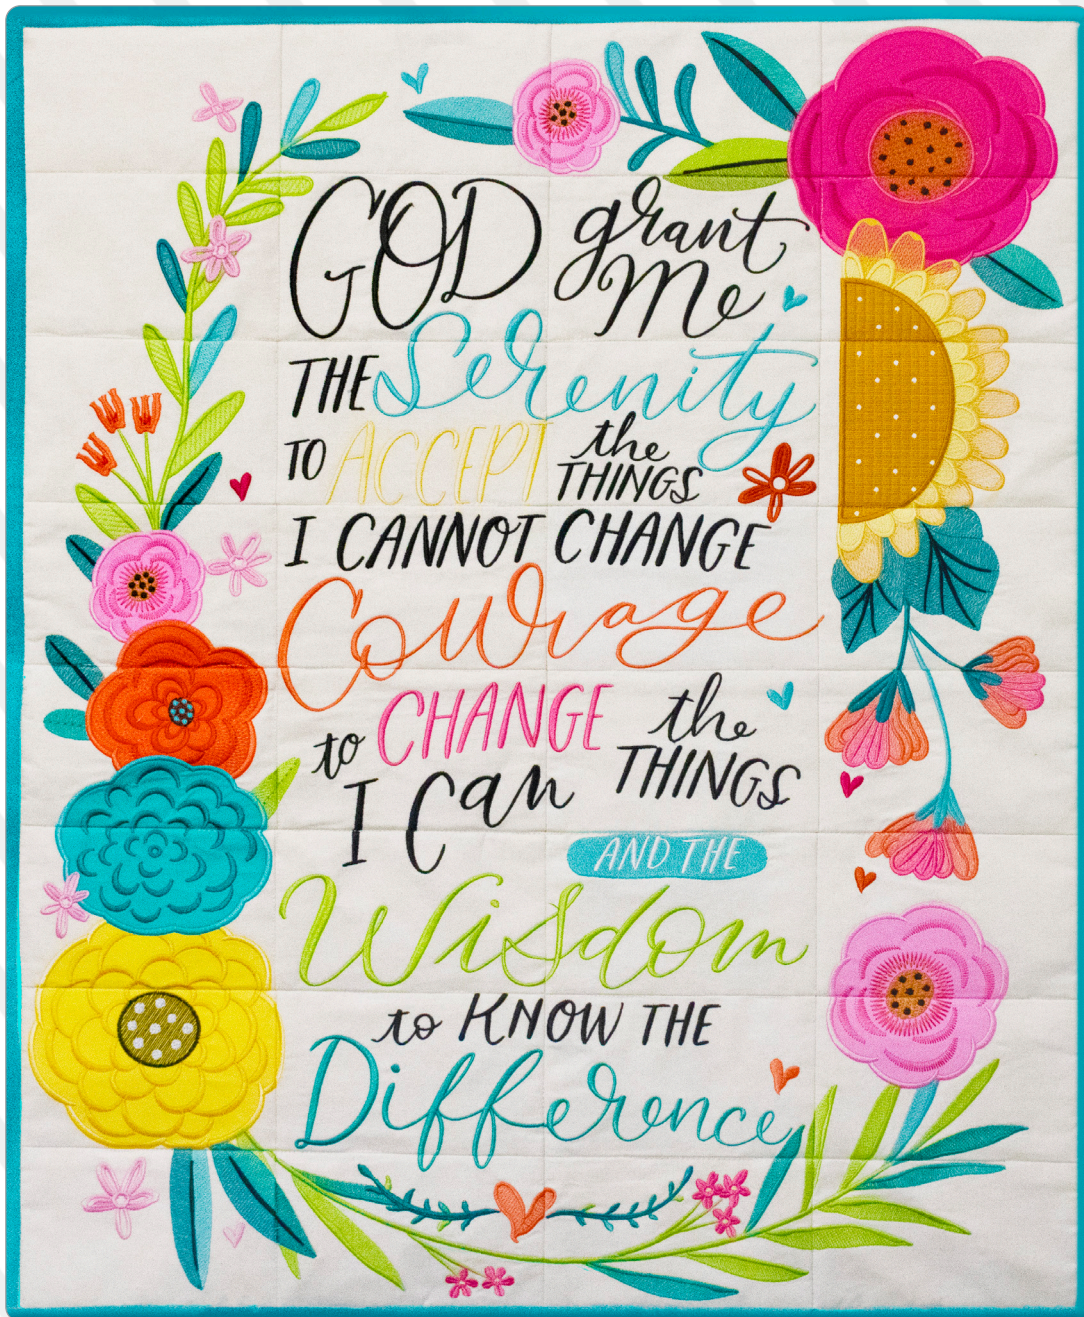 GOD grant
me
THE Serenity
TO ACCEPT the
THINGS
I CANNOT CHANGE
Courage
to CHANGE the
THINGS
I Can
AND THE
Wisdom
to KNOW THE
Difference